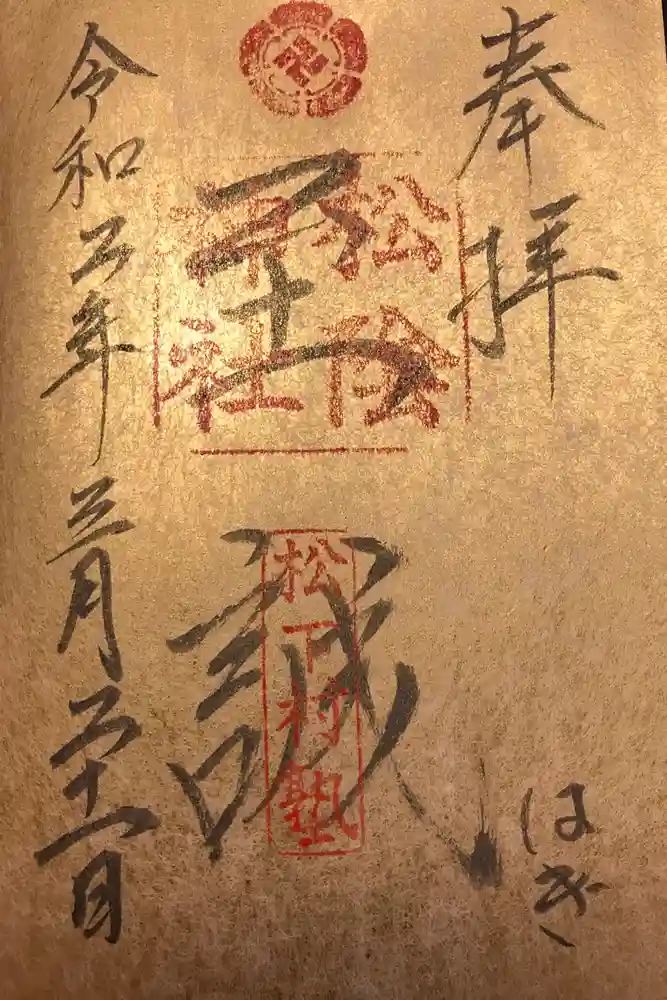 奉拝
はぎ
至誠
松陰
神社
松下村塾
令和五年三月二十一日